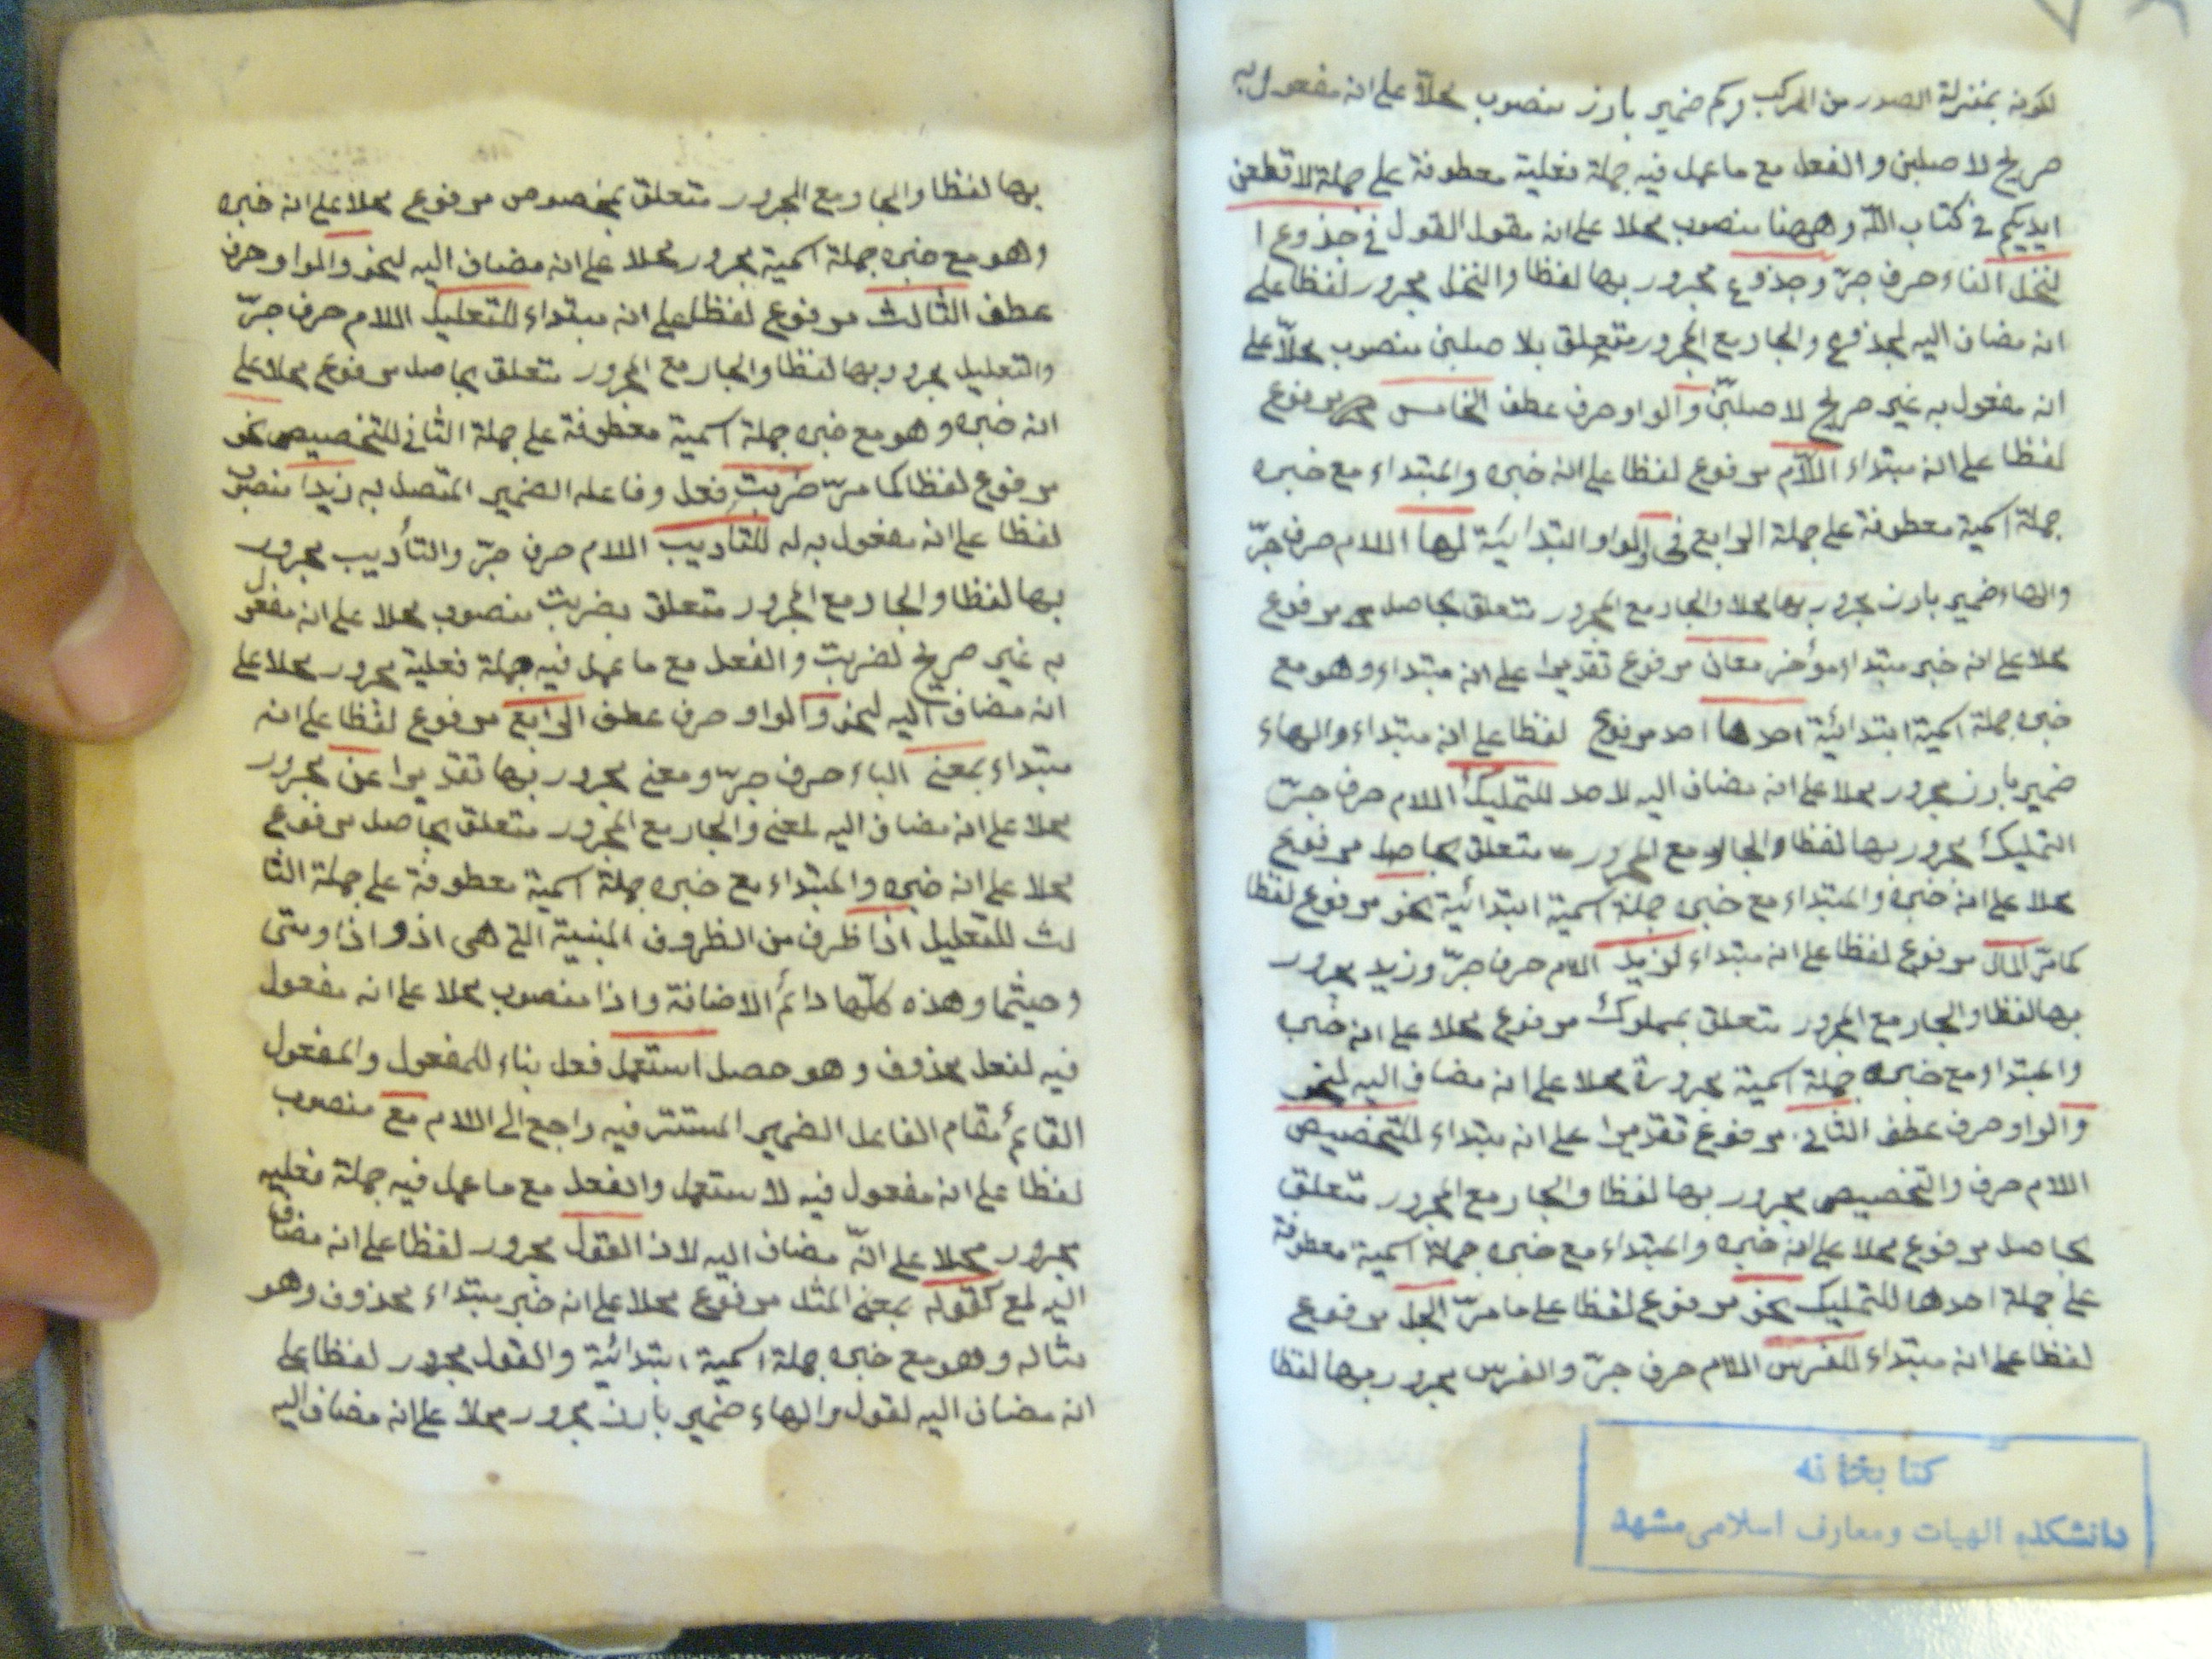 لكونه بمنزلة الصدور من المركب وكم ضمير بارز منصوب محلا على انه مفعول به
صريح لاصلبن والفعل مع ما عمل فيه جملة فعلية معطوفة على جملة لاقطعن
ايديكم في كتاب الله وههنا منصوب محلا على انه مقول القول في جذوع ا
لنخل الفاء حرف جرّ وجذوع مجرور بها لفظا والنخل مجرور لفظا على
انه مضاف اليه لجذوع والجار مع المجرور متعلق بلاصلبن منصوب محلّا على
انه مفعول به غير صريح لاصلبنّ والواو حرف عطف الخامس مرفوع
لفظا على انه مبتداء اللّام مرفوع لفظا على انه خبره والمبتداء مع خبره
جملة اسمية معطوفة على جملة الرابع في الواو ابتدائية لها اللام حرف جرّ
والهاء ضمير بارز مجرور بها محلا والجار مع المجرور متعلق بحاصل مرفوع
محلا على انه خبر مبتداء مؤخر معان مرفوع تقديرا على انه مبتداء وهو مع
خبره جملة اسمية ابتدائية احدها احد مرفوع لفظا على انه مبتداء والهاء
ضمير بارز مجرور محلا على انه مضاف اليه لاحد للتمليك اللام حرف جرّ
التمليك مجرور بها لفظا والجار مع المجرور متعلق بحاصل مرفوع
محلا على انه خبره والمبتداء مع خبره جملة اسمية ابتدائية نحو مرفوع لفظا
كما مرّ المال مرفوع لفظا على انه مبتداء لزيد اللام حرف جرّ وزيد مجرور
بها لفظا والجار مع المجرور متعلق بمملوك مرفوع محلا على انه خبره
والمبتداء مع خبره جملة اسمية مجرورة محلا على انه مضاف اليه لنحو
والواو حرف عطف الثاني مرفوع تقديرا على انه مبتداء للتخصيص
اللام حرف والتخصيص مجرور بها لفظا والجار مع المجرور متعلق
بحاصل مرفوع محلا على انه خبره والمبتداء مع خبره جملة اسمية معطوفة
على جملة احدها للتمليك نحو مرفوع لفظا على ما مرّ الجل مرفوع
لفظا على انه مبتداء للفرس اللام حرف جرّ والفرس مجرور بها لفظا
كتابخانه
دانشكده الهيات ومعارف اسلامى مشهد
بها لفظا والجار مع المجرور متعلق بمخصوص مرفوع محلا على انه خبره
وهو مع خبره جملة اسمية مجرور محلا على انه مضاف اليه لنحو والواو حرف
عطف الثالث مرفوع لفظا على انه مبتداء للتعليل اللام حرف جرّ
والتعليل مجرور بها لفظا والجار مع المجرور متعلق بحاصل مرفوع محلا على
انه خبره وهو مع خبره جملة اسمية معطوفة على جملة الثاني للتخصيص نحو
مرفوع لفظا كما مرّ ضربت فعل وفاعله الضمير المتصل به زيدا منصوب
لفظا على انه مفعول به له للتأديب اللام حرف جرّ والتأديب مجرور
بها لفظا والجار مع المجرور متعلق بضربت منصوب محلا على انه مفعول
به غير صريح لضربت والفعل مع ما عمل فيه جملة فعلية مجرور محلا على
انه مضاف اليه لنحو والواو حرف عطف الرابع مرفوع لفظا على انه
مبتداء بمعنى الباء حرف جرّ ومعنى مجرور بها تقديرا عن مجرور
محلا على انه مضاف اليه لمعنى والجار مع المجرور متعلق بحاصل مرفوع
محلا على انه خبره والمبتداء مع خبره جملة اسمية معطوفة على جملة الثا
لث للتعليل اذا ظرف من الظروف المبنية التي هي اذ واذا ومتى
وحيثما وهذه كلّها دائم الاضافة واذا منصوب محلا على انه مفعول
فيه لفعل محذوف وهو حصل استعمل فعل بناء للمفعول والمفعول
القائم مقام الفاعل الضمير المستتر فيه راجع الى اللام مع منصوب
لفظا على انه مفعول فيه لاستعمل والفعل مع ما عمل فيه جملة فعليه
مجرور محلا على انّه مضاف اليه لاذا القول مجرور لفظا على انه مضاف
اليه لمع كقوله بمعنى المثل مرفوع محلا على انه خبر مبتداء محذوف وهو
مثاله وهو مع خبره جملة اسمية ابتدائية والقول مجرور لفظا على
انه مضاف اليه لقول والهاء ضمير بارز مجرور محلا على انه مضاف اليه